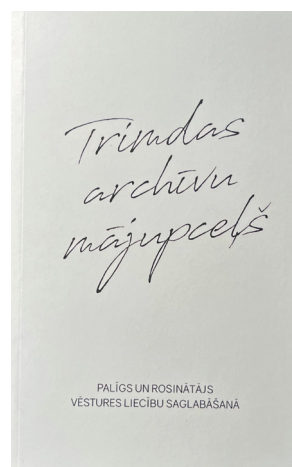 Trimdas
archīvu
mājupceļš
PALĪGS UN ROSINĀTĀJS
VĒSTURES LIECĪBU SAGLABĀŠANĀ